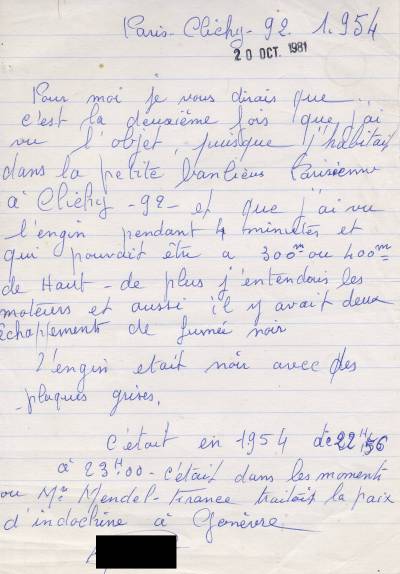 Paris-Clichy-92. 1.954
20 OCT. 1981
Pour moi je vous dirais que..
c'est la deuxième fois que j'ai
vu l'objet, puisque j'habitait
dans la petite banlieue Parisienne
à Clichy -92- et que j'ai vu
l'engin pendant 4 minutes et
qui pouvait être a 300m ou 400m
de Haut - de plus j'entendais les
moteurs et aussi il y avait deux
échapements de fumée noir
L'engin etait noir avec des
plaques grises.
C'était en 1954 de 22H56
à 23H00 - c'était dans les moments
ou Mr Mendel-France traitait la paix
d'indochine à Genèvre